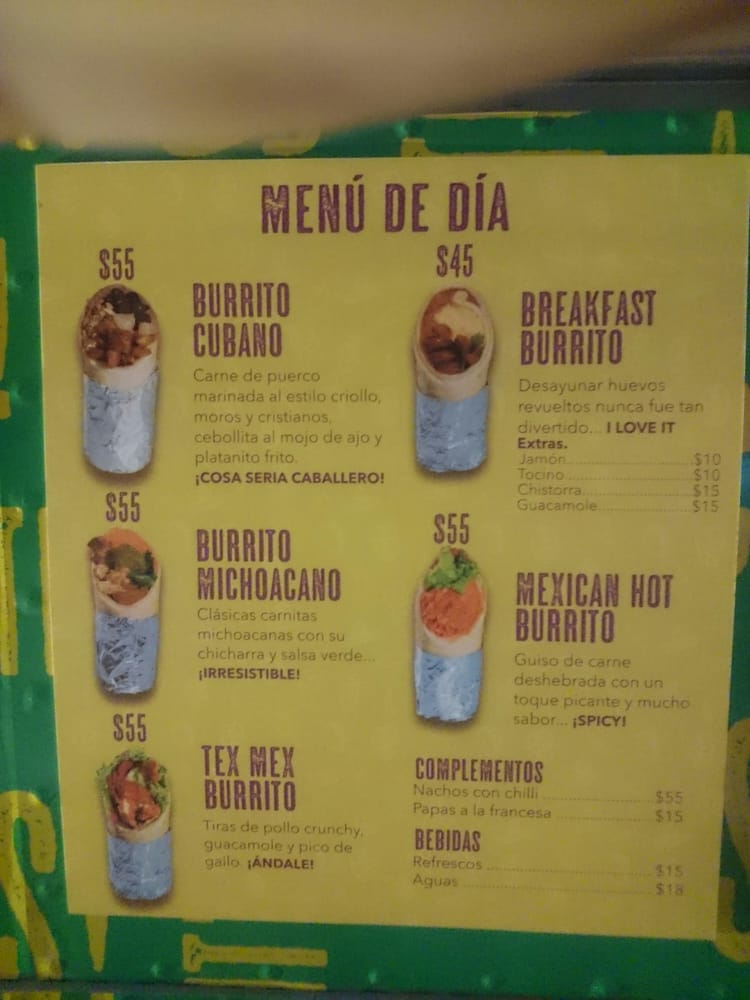 MENÚ DE DÍA
$55
BURRITO
CUBANO
Carne de puerco
marinada al estilo criollo,
moros y cristianos,
cebollita al mojo de ajo y
platanito frito.
¡COSA SERIA CABALLERO!
$55
BURRITO
MICHOACANO
Clásicas carnitas
michoacanas con su
chicharra y salsa verde...
¡IRRESISTIBLE!
$55
TEX MEX
BURRITO
Tiras de pollo crunchy,
guacamole y pico de
gallo. ¡ÁNDALE!
$45
BREAKFAST
BURRITO
Desayunar huevos
revueltos nunca fue tan
divertido... I LOVE IT
Extras.
Jamón $10
Tocino $10
Chistorra $15
Guacamole $15
$55
MEXICAN HOT
BURRITO
Guiso de carne
deshebrada con un
toque picante y mucho
sabor... ¡SPICY!
COMPLEMENTOS
Nachos con chilli $55
Papas a la francesa $15
BEBIDAS
Refrescos $15
Aguas $18